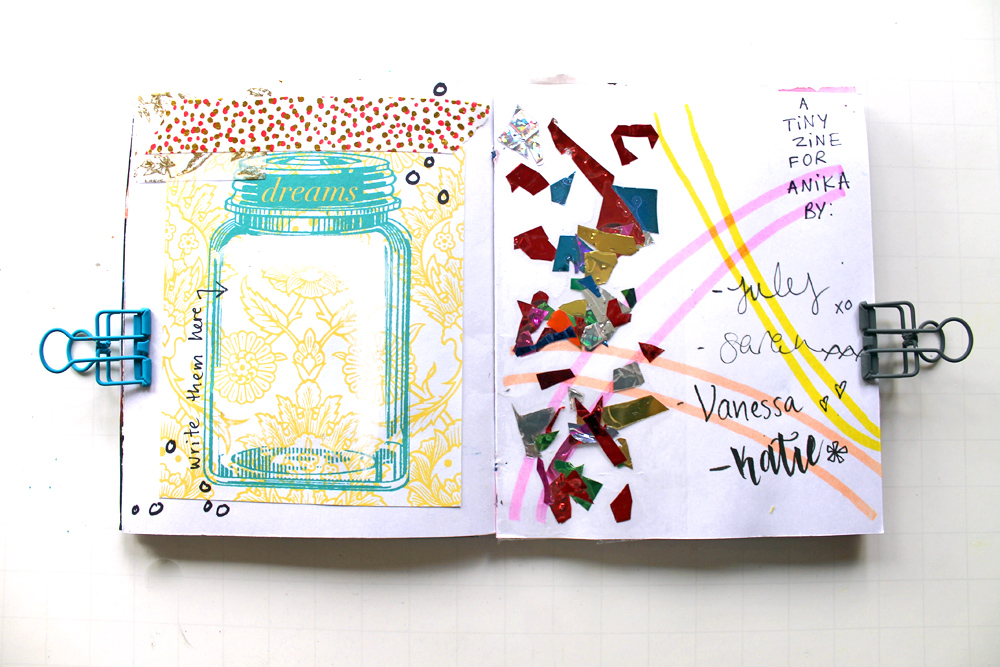 dreams
write them here
A
TiNY
ZiNE
FOR
ANiKA
BY:
- july
xo
- sarah xxx
- Vanessa
- Katie